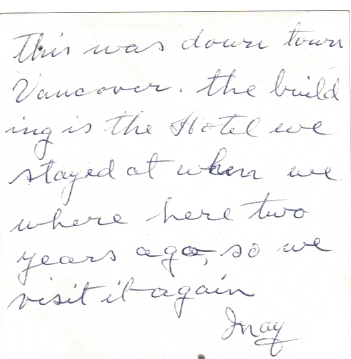 This was down town
Vancover. the build
ing is the Hotel we
stayed at when we
where here two
years ago, so we
visit it again
Inay